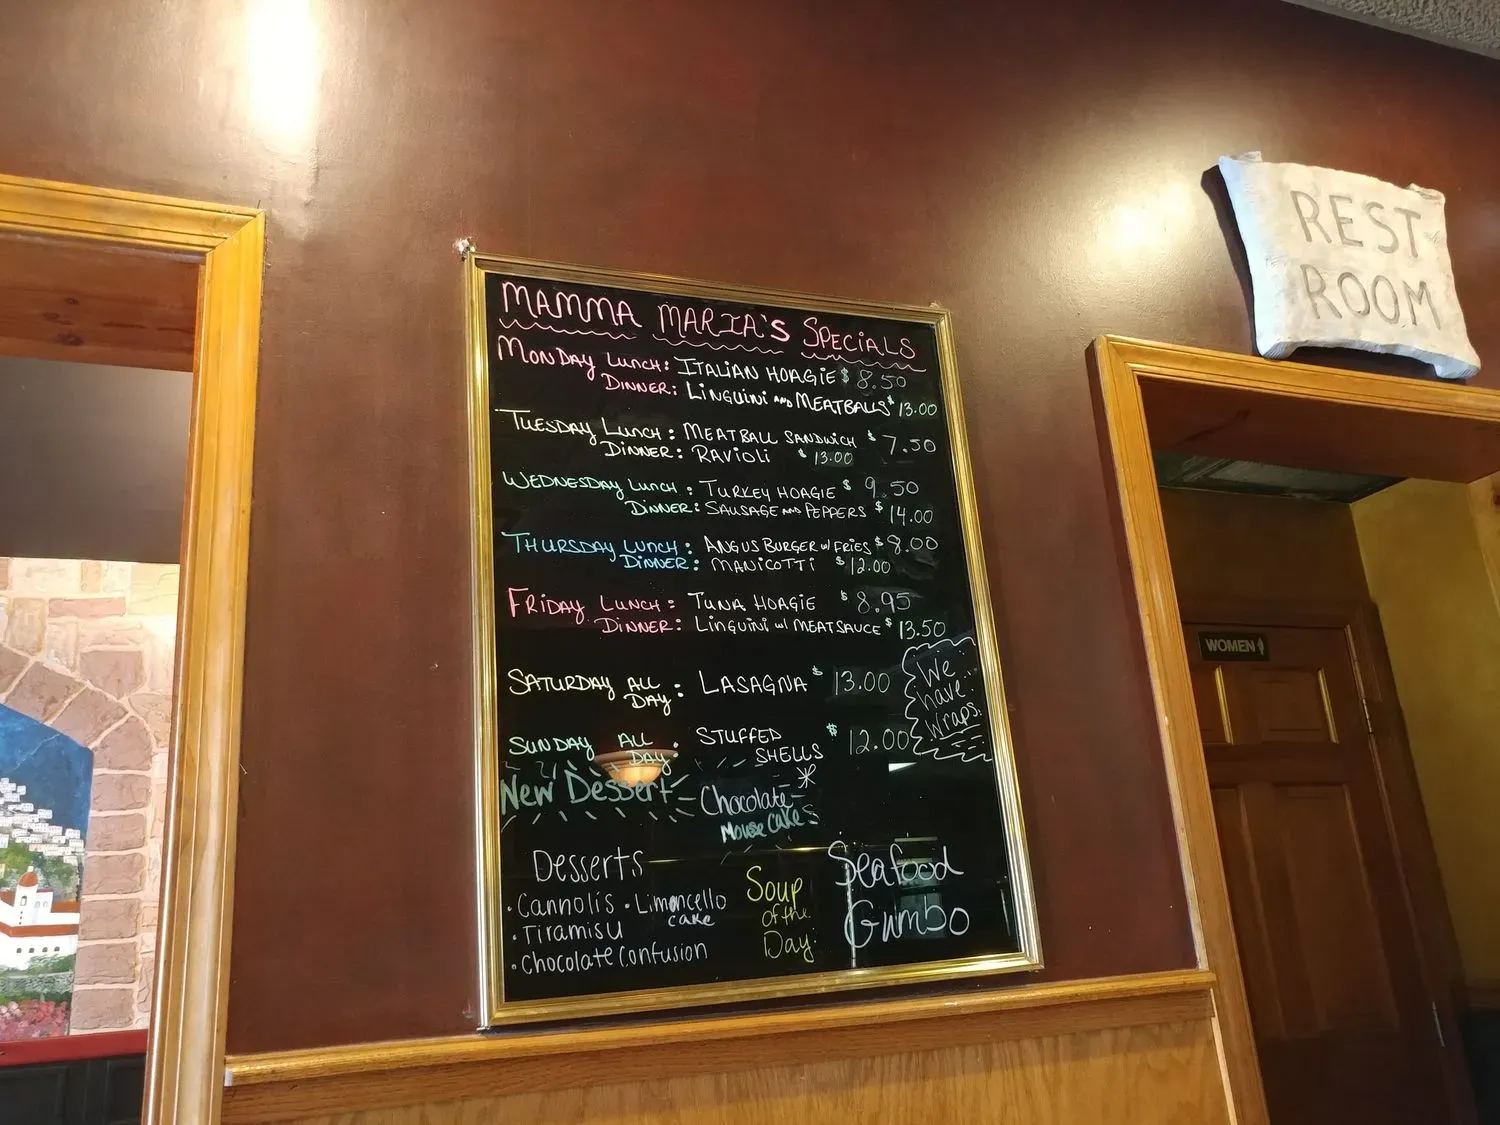 MAMMA MARIA'S SPECIALS
MONDAY LUNCH: ITALIAN HOAGIE $ 8.50
DINNER: LINGUINI AND MEATBALLS $ 13.00
TUESDAY LUNCH: MEATBALL SANDWICH $ 7.50
DINNER: RAVIOLI $ 13.00
WEDNESDAY LUNCH: TURKEY HOAGIE $ 9.50
DINNER: SAUSAGE AND PEPPERS $ 14.00
THURSDAY LUNCH: ANGUS BURGER w/ FRIES $ 8.00
DINNER: MANICOTTI $ 12.00
FRIDAY LUNCH: TUNA HOAGIE $ 8.95
DINNER: LINGUINI w/ MEATSAUCE $ 13.50
SATURDAY ALL DAY: LASAGNA $ 13.00
SUNDAY ALL DAY: STUFFED SHELLS $ 12.00
We
have
Wraps.
New Dessert - Chocolate
Mouse Cakes
Desserts
· Cannolis · Limoncello
cake
· Tiramisu
· Chocolate Confusion
Soup
of the
Day:
Seafood
Gumbo
REST
ROOM
WOMEN